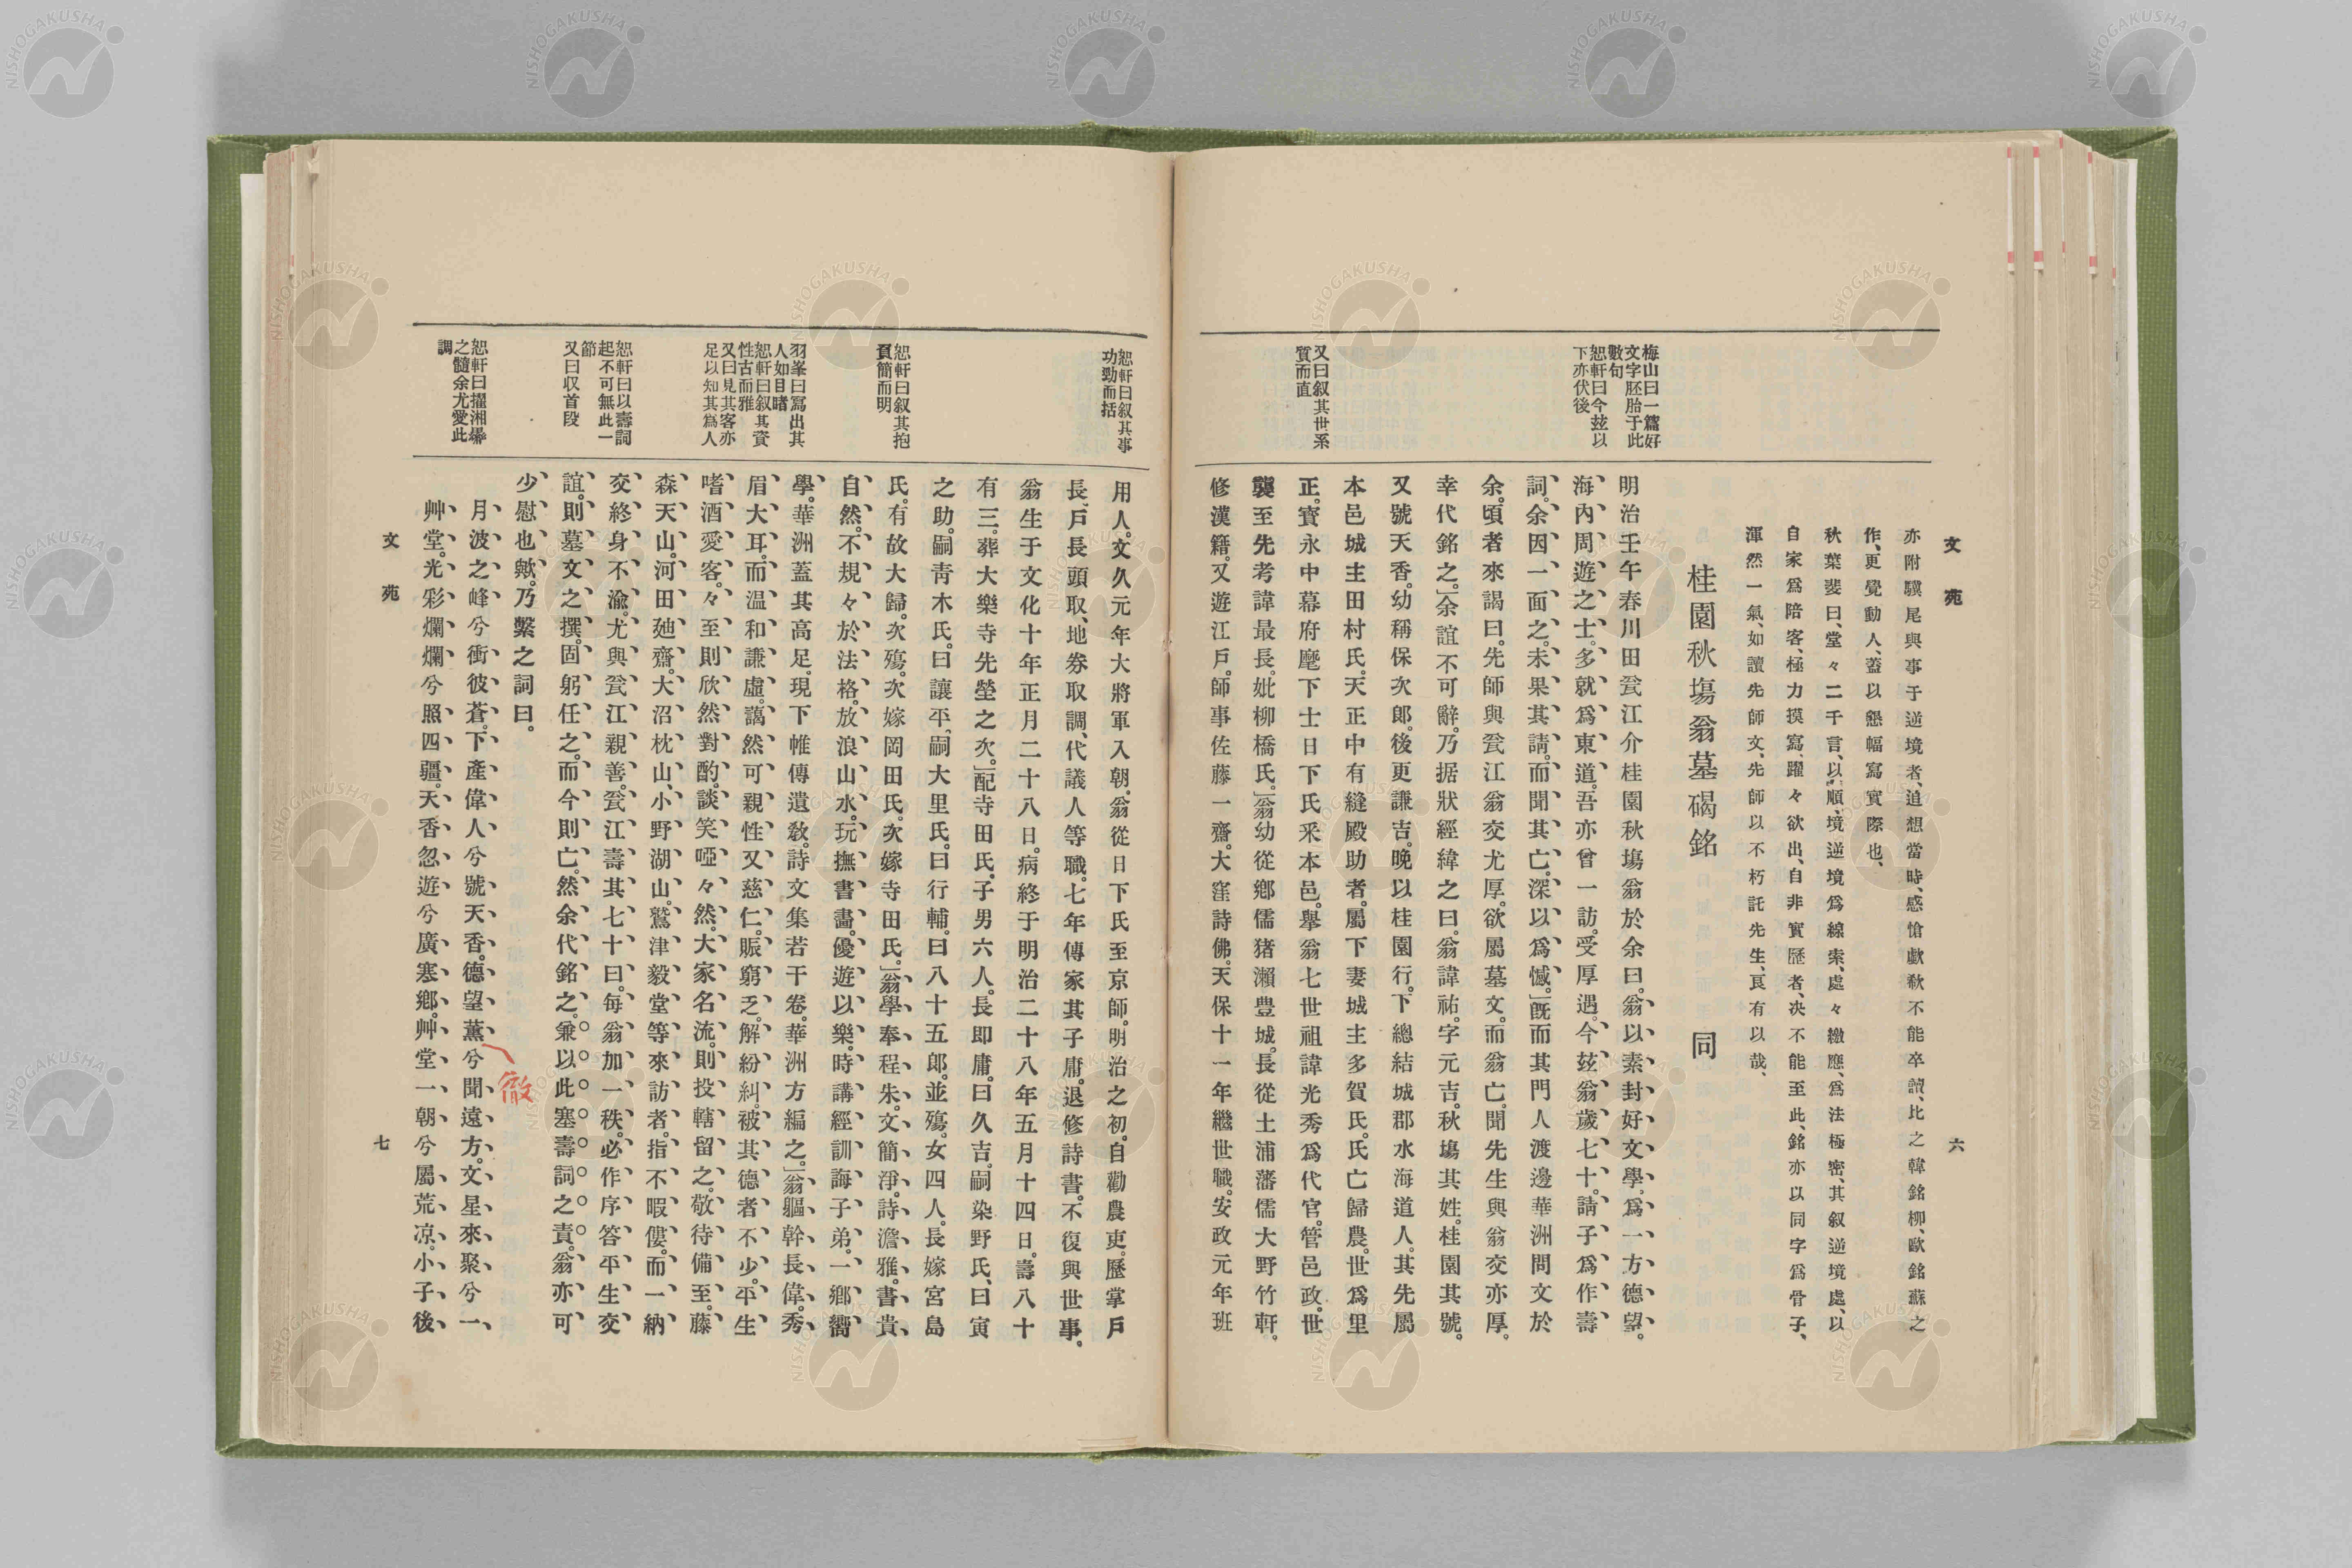 文苑
六
亦附驥尾與事于逆境者、追想當時、感愴歔欷不能卒讀、比之韓銘柳、歐銘蘇之
作、更覺動人、蓋以懇幅寫實際也、
秋葉斐曰、堂々二千言、以順境逆境爲線索、處々繳應、爲法極密、其叙逆境處、以
自家爲陪客、極力摸寫、躍々欲出、自非實歷者、决不能至此、銘亦以同字爲骨子、
渾然一氣、如讀先師文、先師以不朽託先生、良有以哉、
桂園秋塲翁墓碣銘 同
梅山曰一篇好
文字胚胎于此
數句
恕軒曰今玆以
下亦伏後
明治壬午春川田甕江介桂園秋塲翁於余曰。翁以素封好文學。爲一方德望。
海內周遊之士。多就爲東道。吾亦曾一訪。受厚遇。今玆翁歲七十。請子爲作壽
詞。余因一面之。未果其請。而聞其亡。深以爲憾。」既而其門人渡邊華洲問文於
余。頃者來謁曰。先師與甕江翁交尤厚。欲屬墓文。而翁亡。聞先生與翁交亦厚。
幸代銘之。」余誼不可辭。乃据狀經緯之曰。翁諱祐。字元吉。秋塲其姓。桂園其號。
又號天香。幼稱保次郎。後更謙吉。晚以桂園行。下總結城郡水海道人。其先屬
本邑城主田村氏。天正中有縫殿助者。屬下妻城主多賀氏。氏亡歸農。世爲里
又曰叙其世系
質而直
正。寶永中幕府麾下士日下氏采本邑。擧翁七世祖諱光秀爲代官。管邑政。世
襲至先考諱最長。妣柳橋氏。」翁幼從鄉儒猪瀨豊城。長從土浦藩儒大野竹軒。
修漢籍。又遊江戶。師事佐藤一齋。大窪詩佛。天保十一年繼世職。安政元年班
恕軒曰叙其事
功勁而括
用人。文久元年大將軍入朝。翁從日下氏至京師。明治之初。自勸農吏。歷掌戶
長、戶長頭取、地券取調、代議人等職。七年傳家其子庸。退修詩書。不復與世事。
翁生于文化十年正月二十八日。病終于明治二十八年五月十四日。壽八十
有三。葬大樂寺先塋之次。」配寺田氏。子男六人。長即庸。曰久吉。嗣染野氏、曰寅
之助。嗣靑木氏。曰讓平、嗣大里氏。曰行輔。曰八十五郎。並殤。女四人。長嫁宮島
恕軒曰叙其抱
負簡而明
氏。有故大歸。次殤。次嫁岡田氏。次嫁寺田氏。」翁學奉程朱。文簡淨。詩澹雅。書貴
自然。不規々於法格。放浪山水。玩撫書畵。優遊以樂。時講經訓誨子弟。一鄉嚮
羽峯曰寫出其
人如目睹
恕軒曰叙其資
性古而雅
又曰見其客亦
足以知其爲人
學。華洲蓋其高足。現下帷傳遺敎。詩文集若干卷。華洲方編之。」翁軀幹長偉。秀
眉大耳。而溫和謙虛。藹然可親。性又慈仁。賑窮乏。解紛糾。被其德者不少。平生
嗜酒愛客。々至則欣然對酌。談笑啞々然。大家名流。則投轄留之。敬待備至。藤
森天山。河田廸齋。大沼枕山、小野湖山。鷲津毅堂等來訪者。指不暇僂。而一納
恕軒曰以壽詞
起不可無此一
節
又曰収首段
交終身不渝。尤與甕江親善。甕江壽其七十曰。每翁加一秩。必作序答平生交
誼。則墓文之撰。固躬任之。而今則亡。然余代銘之。兼以此塞壽詞之責。翁亦可
少慰也歟。乃繫之詞曰。
恕軒曰擢湘纍
之髓余尤愛此
調
月波之峰兮衝彼蒼。下產偉人兮號天香。德望薰兮聞遠方。文星來聚兮一
徹
艸堂。光彩爛爛兮照四疆。天香忽遊兮廣寒鄉。艸堂一朝兮屬荒凉。小子後
文苑
七